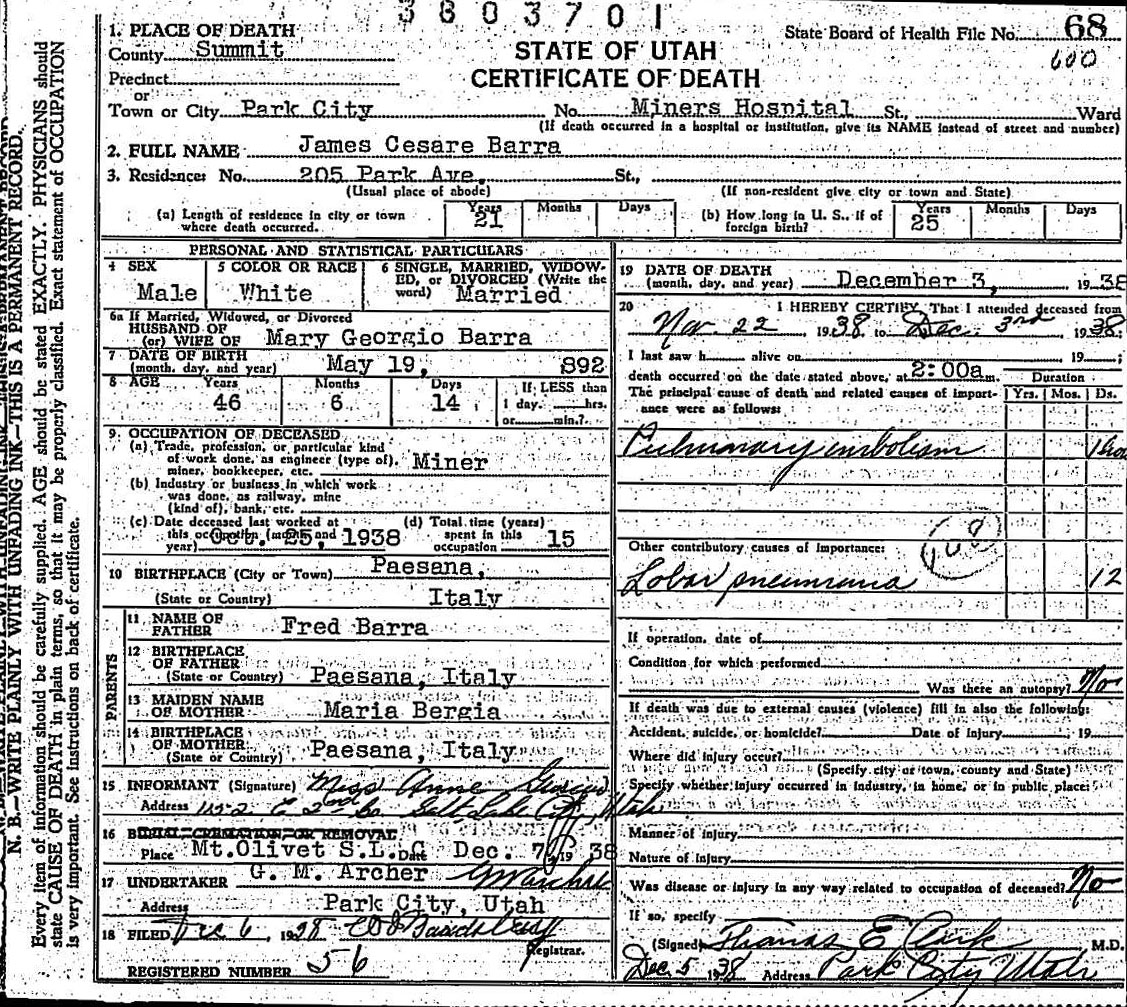 3803701
1. PLACE OF DEATH
County Summit
Precinct
or
Town or City Park City
State Board of Health File No. 68
600
STATE OF UTAH
CERTIFICATE OF DEATH
No. Miners Hospital St., Ward
(If death occurred in a hospital or institution, give its NAME instead of street and number)
2. FULL NAME James Cesare Barra
3. Residence: No. 205 Park Ave. St.,
(Usual place of abode) (If non-resident give city or town and State)
(a) Length of residence in city or town where death occurred. Years 21 Months Days
(b) How long in U. S., if of foreign birth? Years 25 Months Days
PERSONAL AND STATISTICAL PARTICULARS
4 SEX Male
5 COLOR OR RACE White
6 SINGLE, MARRIED, WIDOWED, or DIVORCED (Write the word) Married
6a If Married, Widowed, or Divorced
HUSBAND OF
(or) WIFE OF Mary Georgio Barra
7 DATE OF BIRTH
(month, day, and year) May 19, 892
8 AGE Years 46 Months 6 Days 14 If LESS than
1 day, hrs.
or min.?
9. OCCUPATION OF DECEASED
(a) Trade, profession, or particular kind
of work done, as engineer (type of),
miner, bookkeeper, etc. Miner
(b) Industry or business in which work
was done, as railway, mine
(kind of), bank, etc.
(c) Date deceased last worked at
this occupation (month and
year) Oct. 25, 1938
(d) Total time (years)
spent in this
occupation 15
10 BIRTHPLACE (City or Town) Paesana,
(State or Country) Italy
PARENTS
11 NAME OF
FATHER Fred Barra
12 BIRTHPLACE
OF FATHER
(State or Country) Paesana, Italy
13 MAIDEN NAME
OF MOTHER Maria Bergia
14 BIRTHPLACE
OF MOTHER
(State or Country) Paesana, Italy
15 INFORMANT (Signature) Miss Anne
Address 1152 E 2nd So Salt Lake City, Utah
16 BURIAL, CREMATION, OR REMOVAL
Place Mt.Olivet S.L.C Date Dec. 7, 19 38
17 UNDERTAKER G. M. Archer GMArcher
Address Park City, Utah
18 FILED Dec 6, 1938
Registrar.
REGISTERED NUMBER 56
19 DATE OF DEATH
(month, day, and year) December 3, 19 38
20 I HEREBY CERTIFY, That I attended deceased from
Nov. 22 1938 to Dec. 3rd 1938;
I last saw h alive on 19 ;
death occurred on the date stated above, at 2:00a m.
Duration
The principal cause of death and related causes of importance were as follows: Yrs. Mos. Ds.
Pulmonary embolism
108
Other contributory causes of importance:
Lobar pneumonia 12
If operation, date of
Condition for which performed
Was there an autopsy? No
If death was due to external causes (violence) fill in also the following:
Accident, suicide, or homicide? Date of injury 19
Where did injury occur?
(Specify city or town, county and State)
Specify whether injury occurred in industry, in home, or in public place:
Manner of injury
Nature of injury
Was disease or injury in any way related to occupation of deceased? No
If so, specify
(Signed) Thomas E Clark M.D.
Dec. 5 1938 Address Park City Utah
N. B.—WRITE PLAINLY WITH UNFADING INK—THIS IS A PERMANENT RECORD.
Every item of information should be carefully supplied. AGE should be stated EXACTLY. PHYSICIANS should
state CAUSE OF DEATH in plain terms, so that it may be properly classified. Exact statement of OCCUPATION
is very important. See instructions on back of certificate.